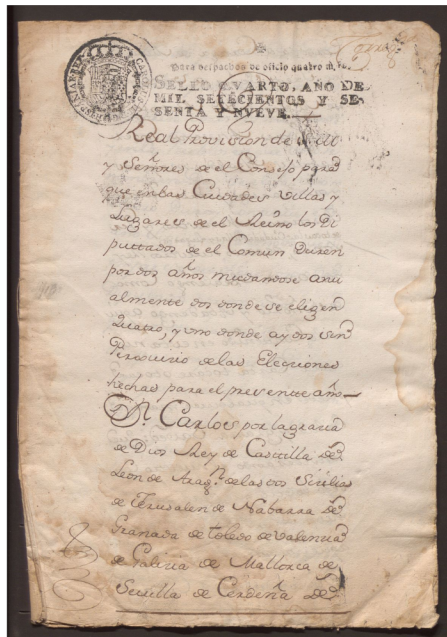 Para despachos de oficio quatro mrs.
SELLO QVARTO, AÑO DE
MIL SETECIENTOS Y SE-
SENTA Y NVEVE.
Real Provision de
y Señores de el Consejo para
que en las Ciudades Villas y
Lugares de el Reino los Di
puttados de el Comun Duren
por dos años mudandose anu
almente dos donde se eligen
Quatro, y uno donde ay dos sin
Perjuicio de las Elecciones
hechas para el presente año
Dn. Carlos por la gracia
de Dios Rey de Casttilla de
Leon de Aragn. de las dos Sicilias
de Jerusalen de Nabarra de
Granada de Toledo de Valencia
de Galicia de Mallorca de
Sevilla de Cerdeña de